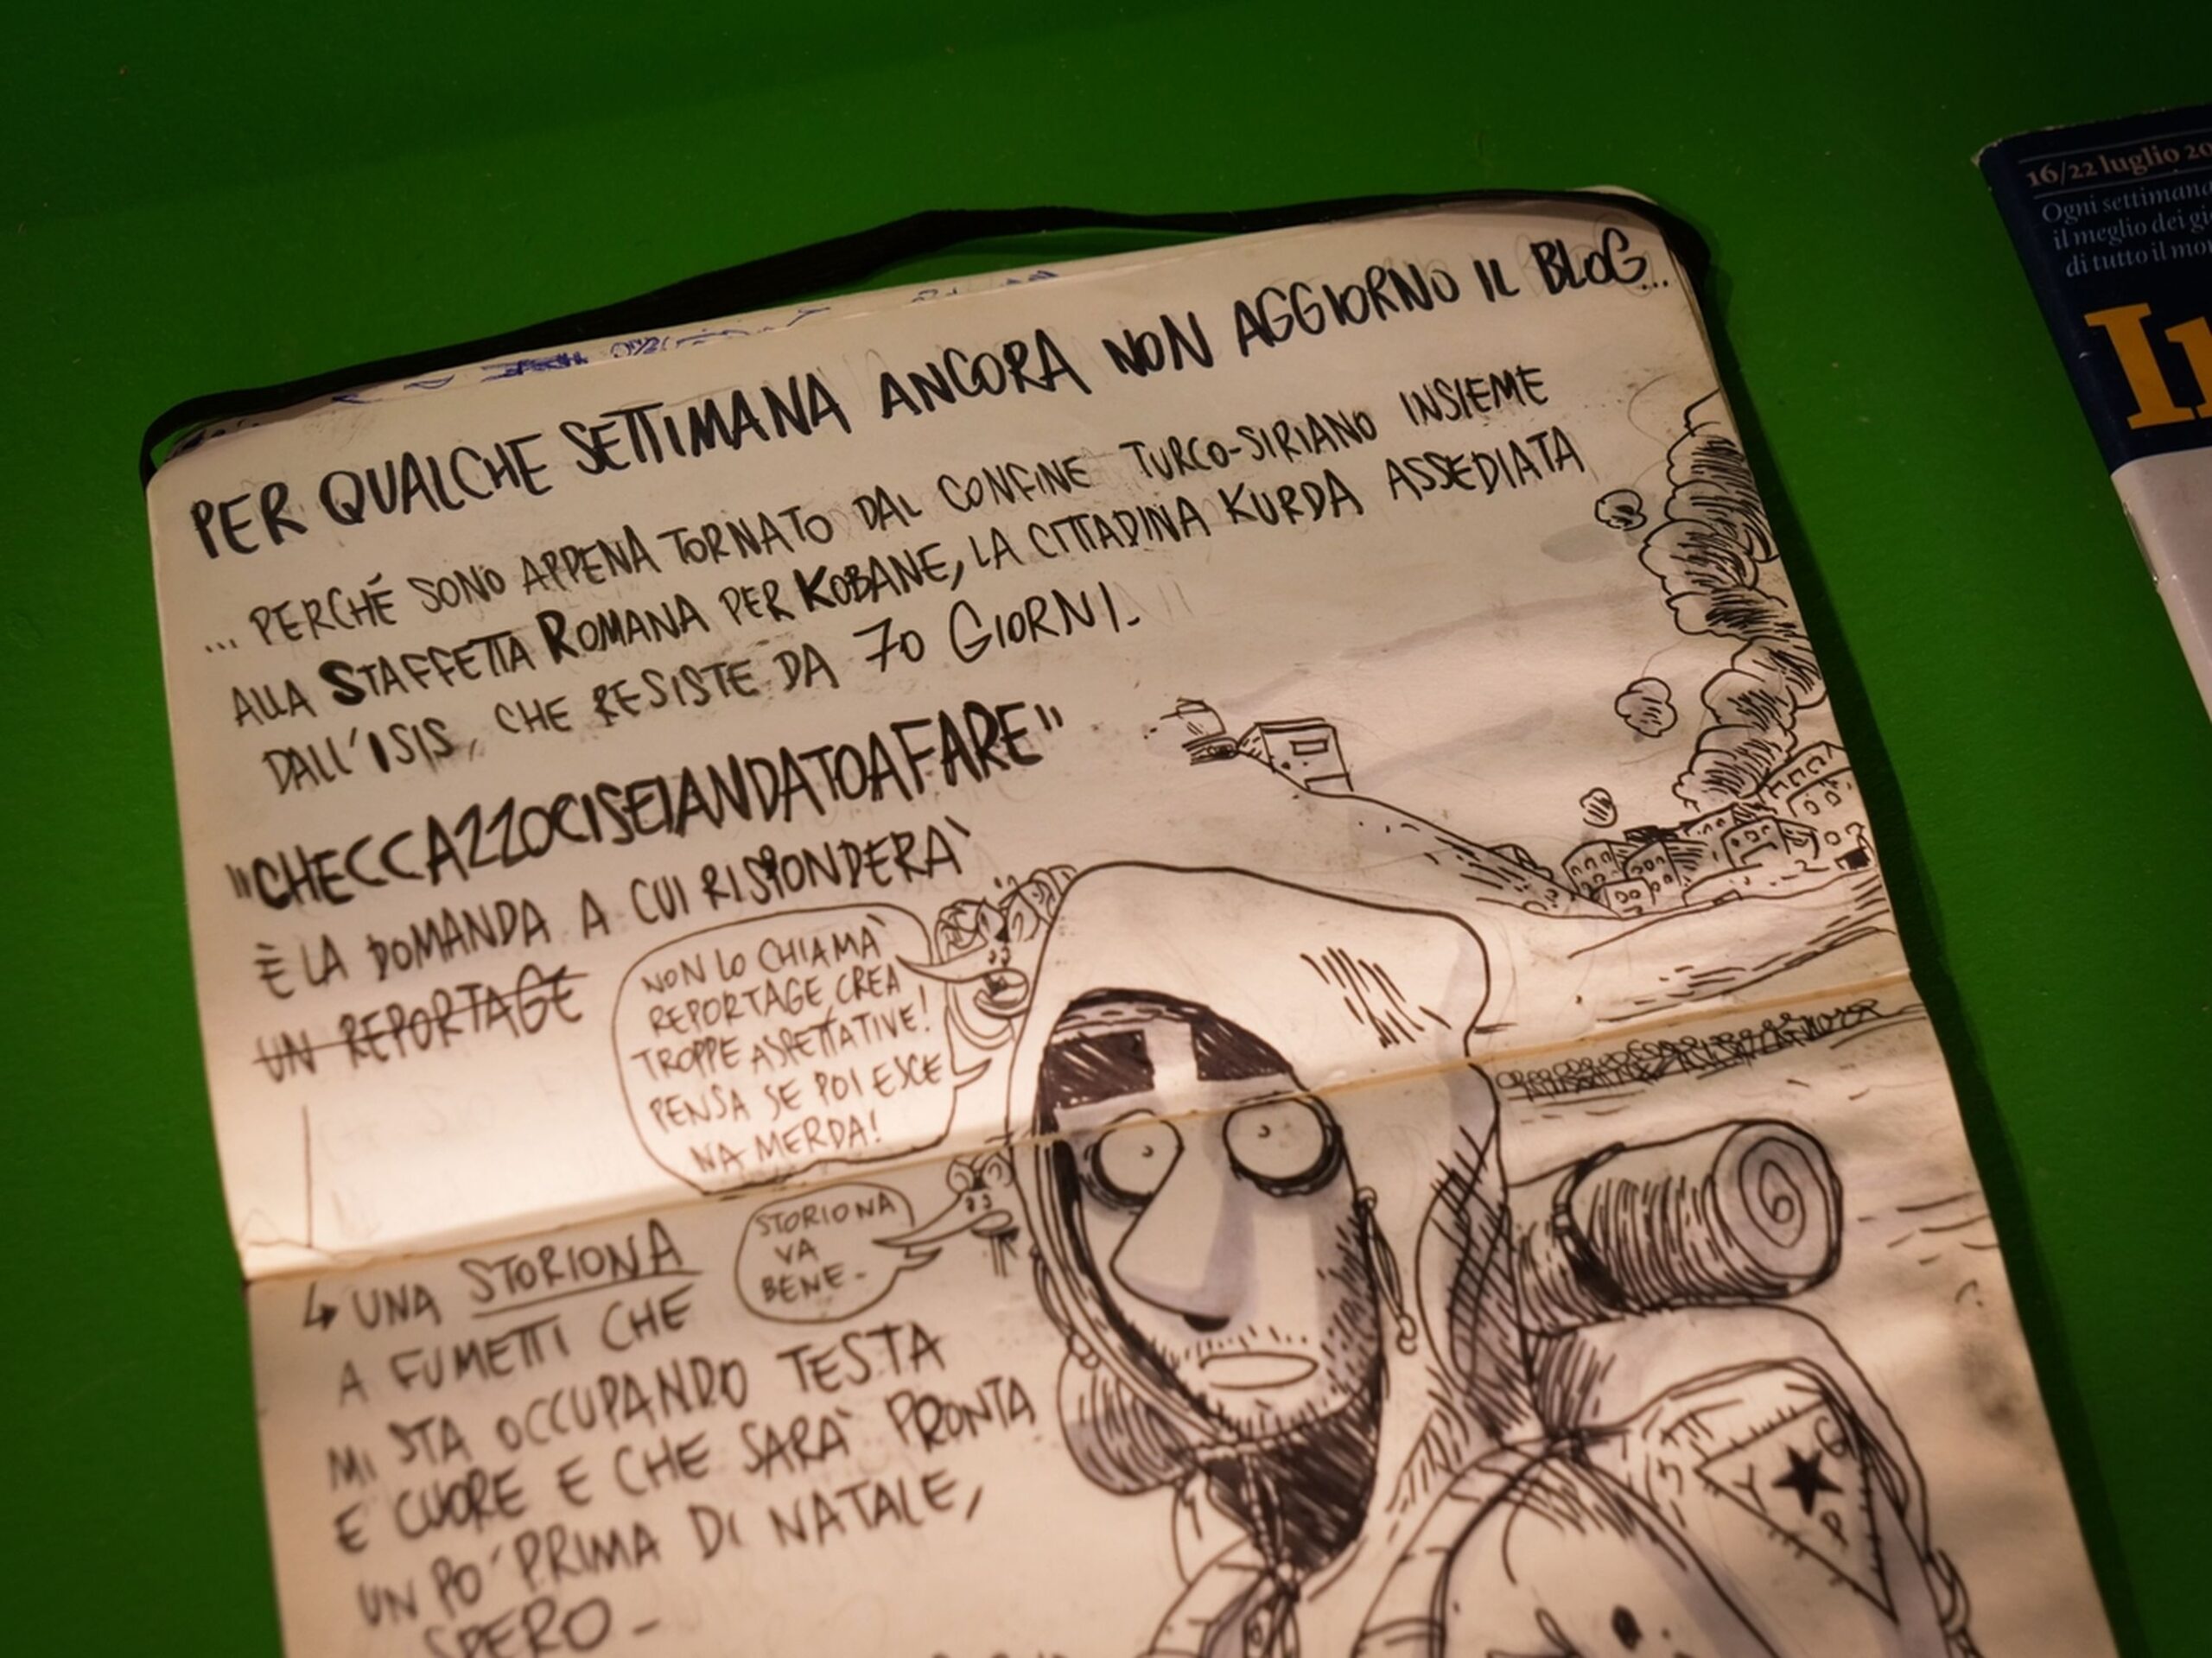 PER QUALCHE SETTIMANA ANCORA NON AGGIORNO IL BLOG...
... PERCHÉ SONO APPENA TORNATO DAL CONFINE TURCO-SIRIANO INSIEME
ALLA STAFFETTA ROMANA PER KOBANE, LA CITTADINA KURDA ASSEDIATA
DALL'ISIS, CHE RESISTE DA 70 GIORNI.
"CHECCAZZOCISEIANDATOAFARE"
È LA DOMANDA A CUI RISPONDERÀ
UN REPORTAGE
NON LO CHIAMA'
REPORTAGE, CREA
TROPPE ASPETTATIVE!
PENSA SE POI ESCE
NA MERDA!
STORIONA
VA
BENE.
UNA STORIONA
A FUMETTI CHE
MI STA OCCUPANDO TESTA
E CUORE E CHE SARÀ PRONTA
UN PO' PRIMA DI NATALE,
SPERO.
Y P G
16/22 luglio 20
Ogni settimana
il meglio dei gi
di tutto il mon